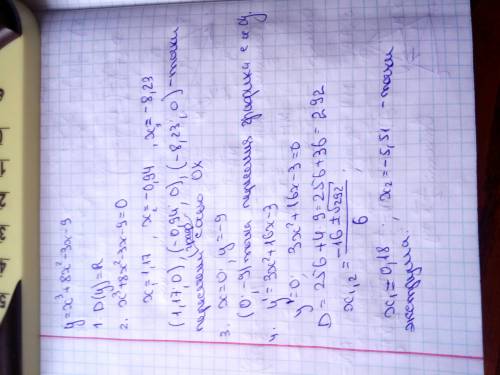 y=x³+8x²-3x-9
1. D(y)=R
2. x³+8x²-3x-9=0
x₁=1,17, x₂=-0,94, x₃=-8,23
(1,17;0), (-0,94;0), (-8,23;0)-точки
пересечения граф. с осью OX
3. x=0; y=-9
(0;-9) точка пересечения графика с осью Oy.
4. y'=3x²+16x-3
y'=0; 3x²+16x-3=0
D=256+4·9=256+36=292
x₁,₂=-16±√292/6
x₁=0,18; x₂=-5,51 - точки
экстремума.